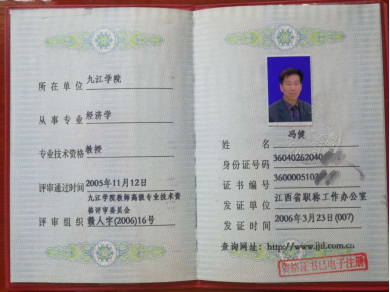 所在单位 九江学院
从事专业 经济学
专业技术资格 教授
评审通过时间 2005年11月12日
九江学院教师高级专业技术资
格评审委员会
评审组织 赣人字(2006)16号
姓名 冯健
身份证号码 36040262040
证书编号 3600005102
发证单位 江西省职称工作办公室
发证时间 2006年3月23日(007)
查询网址: http://www.jjtl.com.cn
资格证书已电子注册